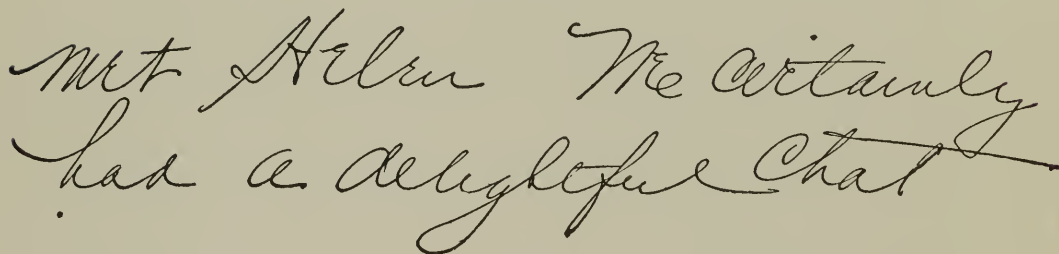 Met Helen We certainly
had a delightful Chat